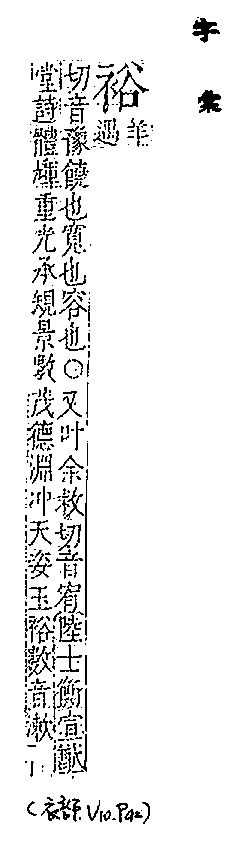 字彙
裕
羊
遇
切音豫饒也寬也容也○又叶余救切音宥陸士衡宣猷
堂詩體輝重光承規景數茂德淵冲天姿玉裕數音漱
(衣部.V10.P42)